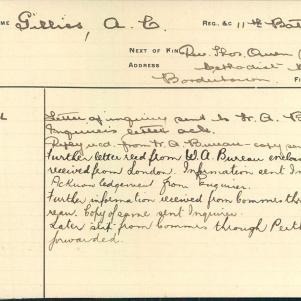 ME Gillies, A. C. REG. &C 11th Bat
NEXT OF KIN Rev. Thos. Owen
ADDRESS Methodist
Bordertown FI
Letter of inquiry sent to W. A. B
Inquirer's letter ack.
Reply recd. from W. A. Bureau - copy sen
Further letter recd from W.A. Bureau enclos
received from London. Information sent In
Acknowledgement from Enquirer.
Further information received from Commrs thro
regan. Copy of same sent Inquirer
Later slip from Commrs through Perth
forwarded.